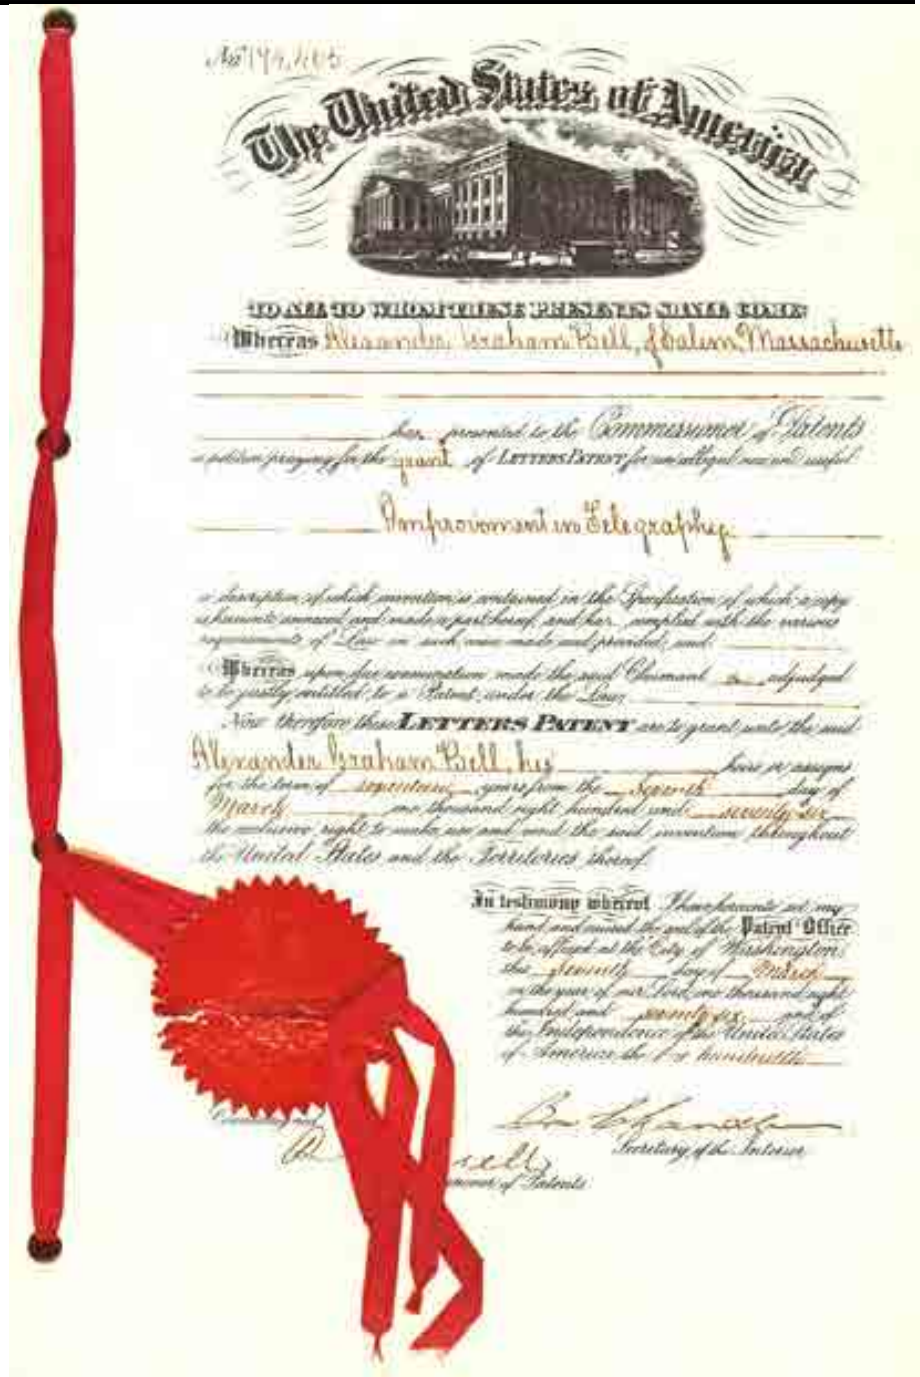 No 174,465
The United States of America
TO ALL TO WHOM THESE PRESENTS SHALL COME:
Whereas Alexander Graham Bell, of Salem, Massachusetts
has presented to the Commissioner of Patents
a petition praying for the grant of LETTERS PATENT for an alleged new and useful
Improvement in Telegraphy
a description of which invention is contained in the Specification of which a copy
is hereunto annexed and made a part hereof, and has complied with the various
requirements of Law in such cases made and provided, and
Whereas upon due examination made the said Claimant is adjudged
to be justly entitled to a Patent under the Law.
Now therefore these LETTERS PATENT are to grant unto the said
Alexander Graham Bell, his heirs or assigns
for the term of seventeen years from the seventh day of
March one thousand eight hundred and seventy-six
the exclusive right to make, use and vend the said invention throughout
the United States and the Territories thereof.
In testimony whereof I have hereunto set my
hand and caused the seal of the Patent Office
to be affixed at the City of Washington
this seventh day of March
in the year of our Lord one thousand eight
hundred and seventy-six and of
the Independence of the United States
of America the one hundredth
Secretary of the Interior
of Patents